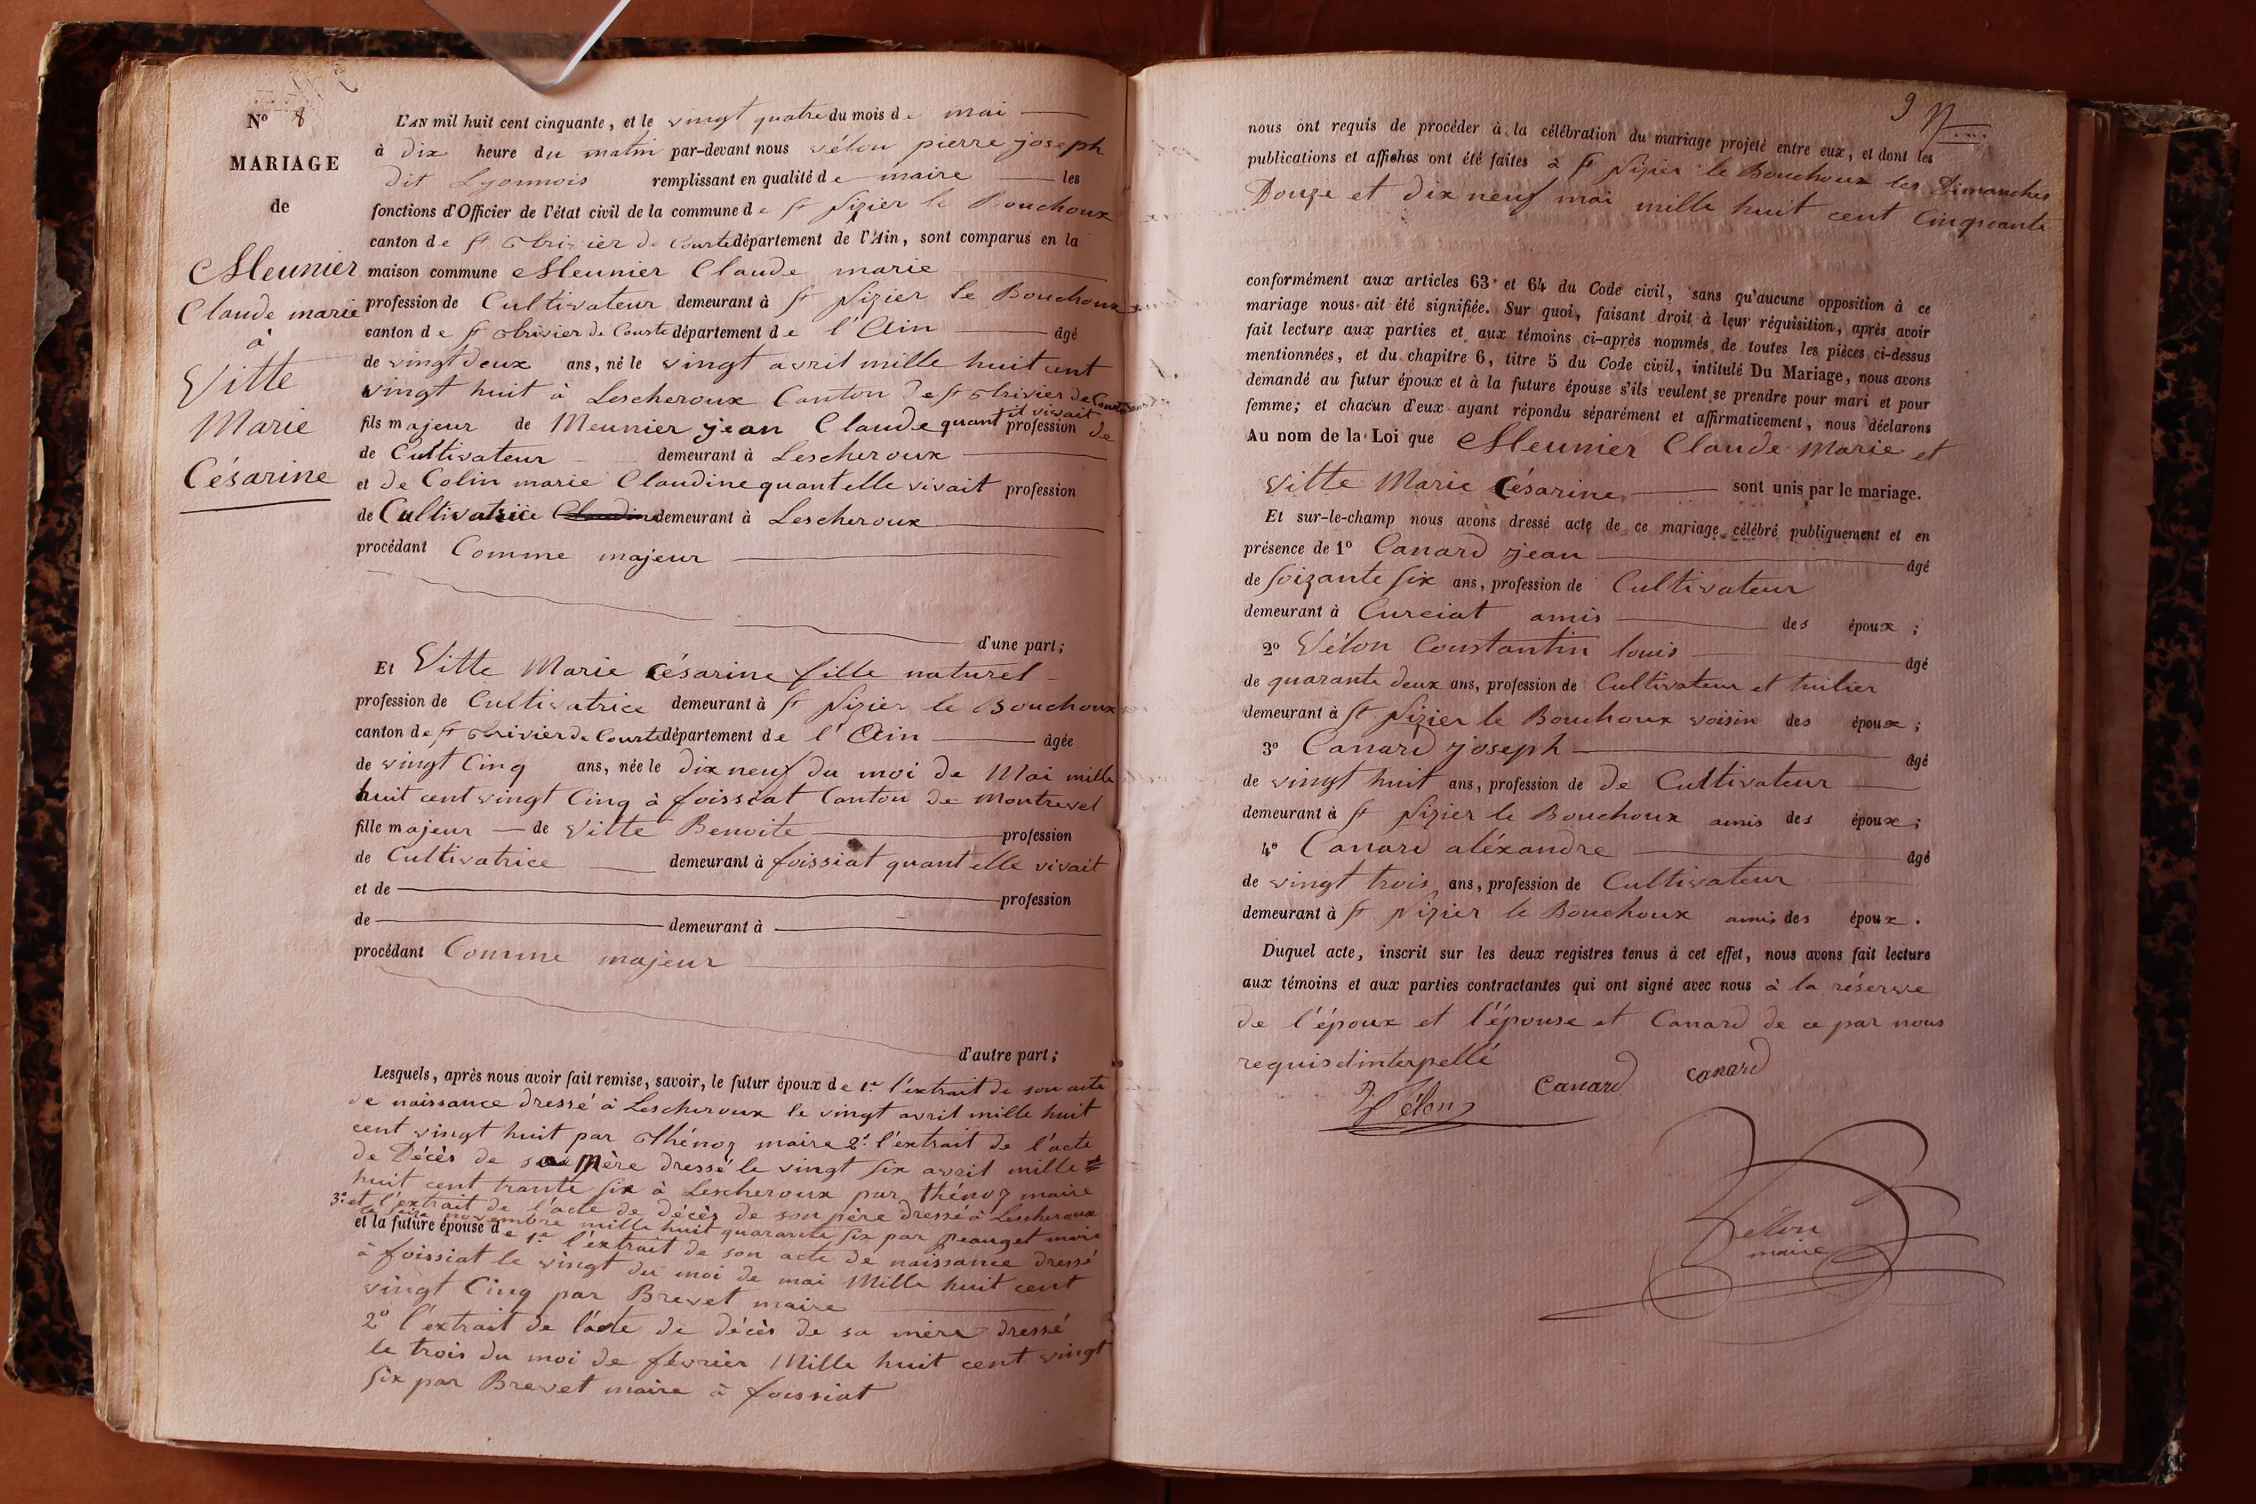 N° 8
MARIAGE
de
Meunier
Claude marie
à
Vitte
Marie
Césarine
L'AN mil huit cent cinquante, et le vingt quatre du mois de mai
à dix heure du matin par-devant nous vélon pierre joseph
dit Lyonnois remplissant en qualité de maire les
fonctions d'Officier de l'état civil de la commune de St Nizier le Bouchoux
canton de St Trivier de Courte département de l'Ain, sont comparus en la
maison commune Meunier Claude marie
profession de Cultivateur demeurant à St Nizier le Bouchoux
canton de St Trivier de Courte département de l'Ain âgé
de vingt deux ans, né le vingt avril mille huit cent
vingt huit à Lescheroux Canton de St Trivier de Courte
fils majeur de Meunier jean Claude quant il vivait profession de
de Cultivateur demeurant à Lescheroux
et de Colin marie Claudine quant elle vivait profession
de Cultivatrice demeurant à Lescheroux
procédant Comme majeur
d'une part;
Et Vitte Marie Césarine fille naturel
profession de Cultivatrice demeurant à St Nizier le Bouchoux
canton de St Trivier de Courte département de l'Ain âgée
de vingt Cinq ans, née le dix neuf du moi de Mai mille
huit cent vingt Cinq à foissiat Canton de Montrevel
fille majeur de Vitte Benoite profession
de Cultivatrice demeurant à foissiat quant elle vivait
et de profession
de demeurant à
procédant Comme majeur
d'autre part;
Lesquels, après nous avoir fait remise, savoir, le futur époux de 1er l'extrait de son acte
de naissance dressé à Lescheroux le vingt avril mille huit
cent vingt huit par Thénoz maire 2° l'extrait de l'acte
de Décès de sa Mère dressé le vingt six avril mille
huit cent trante six à Lescheroux par thénoz maire
3° et l'extrait de l'acte de décès de son père dressé à Lescheroux
novembre mille huit quarante six par peauget maire
et la future épouse de 1er l'extrait de son acte de naissance dressé
à foissiat le vingt du moi de mai Mille huit cent
vingt Cinq par Brevet maire
2° l'éxtrait de l'acte de décès de sa mère dressé
le trois du moi de février Mille huit cent vingt
six par Brevet maire à foissiat
9
nous ont requis de procéder à la célébration du mariage projeté entre eux, et dont les
publications et affiches ont été faites à St Nizier le Bouchoux les Dimanches
Douze et dix neuf mai mille huit cent Cinquante
conformément aux articles 63 et 64 du Code civil, sans qu'aucune opposition à ce
mariage nous ait été signifiée. Sur quoi, faisant droit à leur réquisition, après avoir
fait lecture aux parties et aux témoins ci-après nommés de toutes les pièces ci-dessus
mentionnées, et du chapitre 6, titre 5 du Code civil, intitulé Du Mariage, nous avons
demandé au futur époux et à la future épouse s'ils veulent se prendre pour mari et pour
femme; et chacun d'eux ayant répondu séparément et affirmativement, nous déclarons
Au nom de la Loi que Meunier Claude Marie et
Vitte Marie Césarine sont unis par le mariage.
Et sur-le-champ nous avons dressé acte de ce mariage célébré publiquement et en
présence de 1° Canard jean âgé
de soizante six ans, profession de Cultivateur
demeurant à Curciat amis des époux;
2° Vélon Constantin louis âgé
de quarante deux ans, profession de Cultivateur et tuilier
demeurant à St Nizier le Bouchoux voisin des époux;
3° Canard joseph âgé
de vingt huit ans, profession de de Cultivateur
demeurant à St Nizier le Bouchoux amis des époux;
4° Canard aléxandre âgé
de vingt trois ans, profession de Cultivateur
demeurant à St Nizier le Bouchoux amis des époux.
Duquel acte, inscrit sur les deux registres tenus à cet effet, nous avons fait lecture
aux témoins et aux parties contractantes qui ont signé avec nous à la réserve
de l'époux et l'épouse et Canard de ce par nous
requis d'interpellé
Vélon Canard canard
Vélon
maire